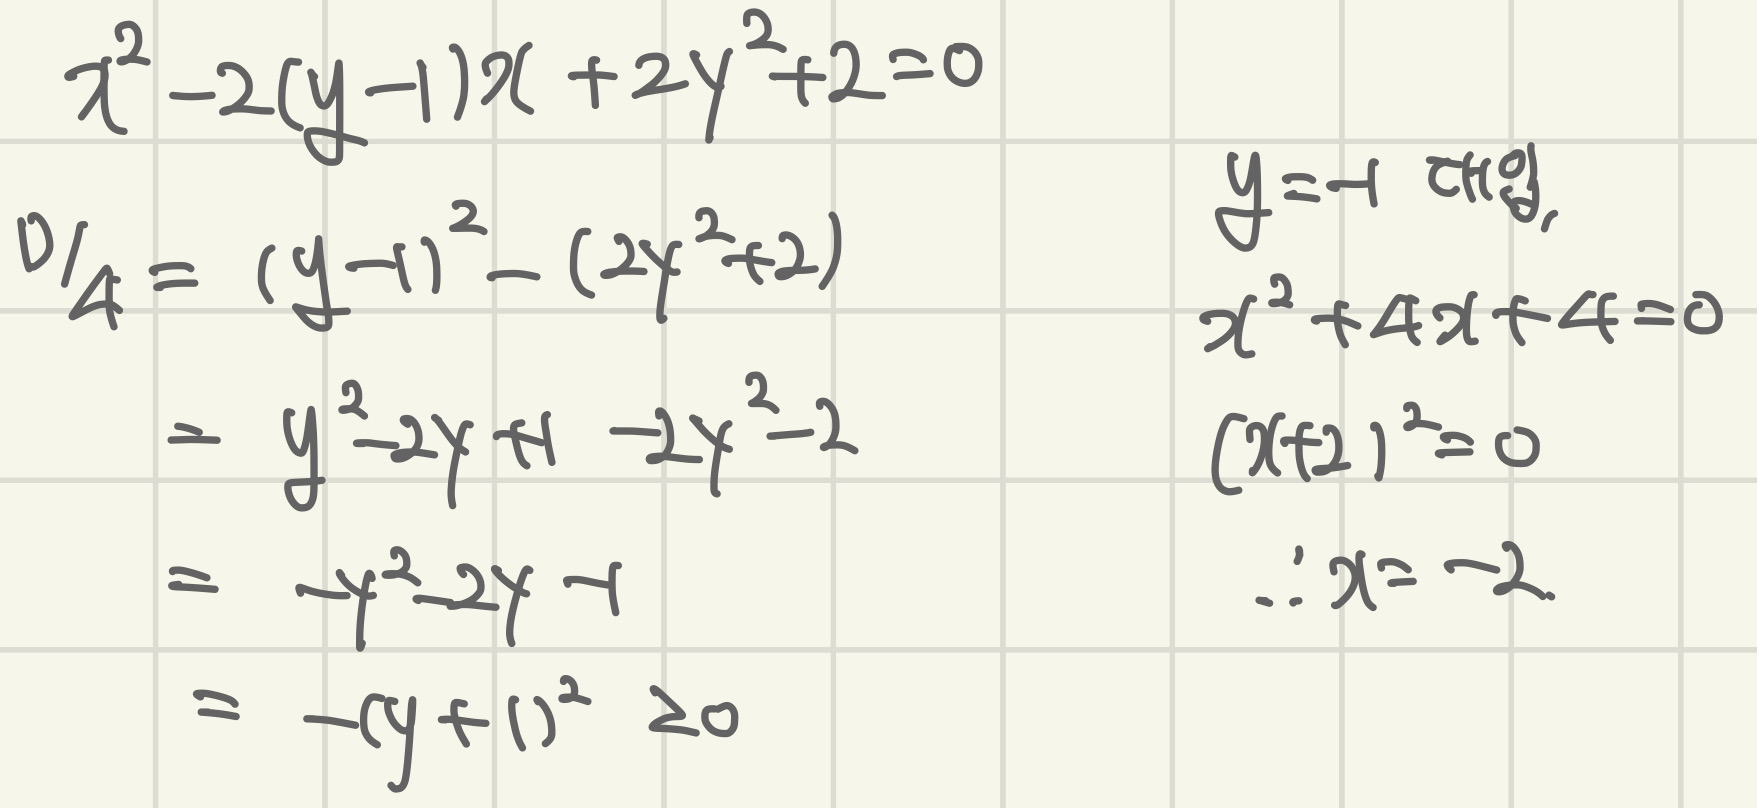 x² - 2(y-1)x + 2y² + 2 = 0
D/4 = (y-1)² - (2y²+2)
= y² - 2y + 1 - 2y² - 2
= -y² - 2y - 1
= -(y+1)² ≥ 0
y = -1 대입,
x² + 4x + 4 = 0
(x+2)² = 0
∴ x = -2